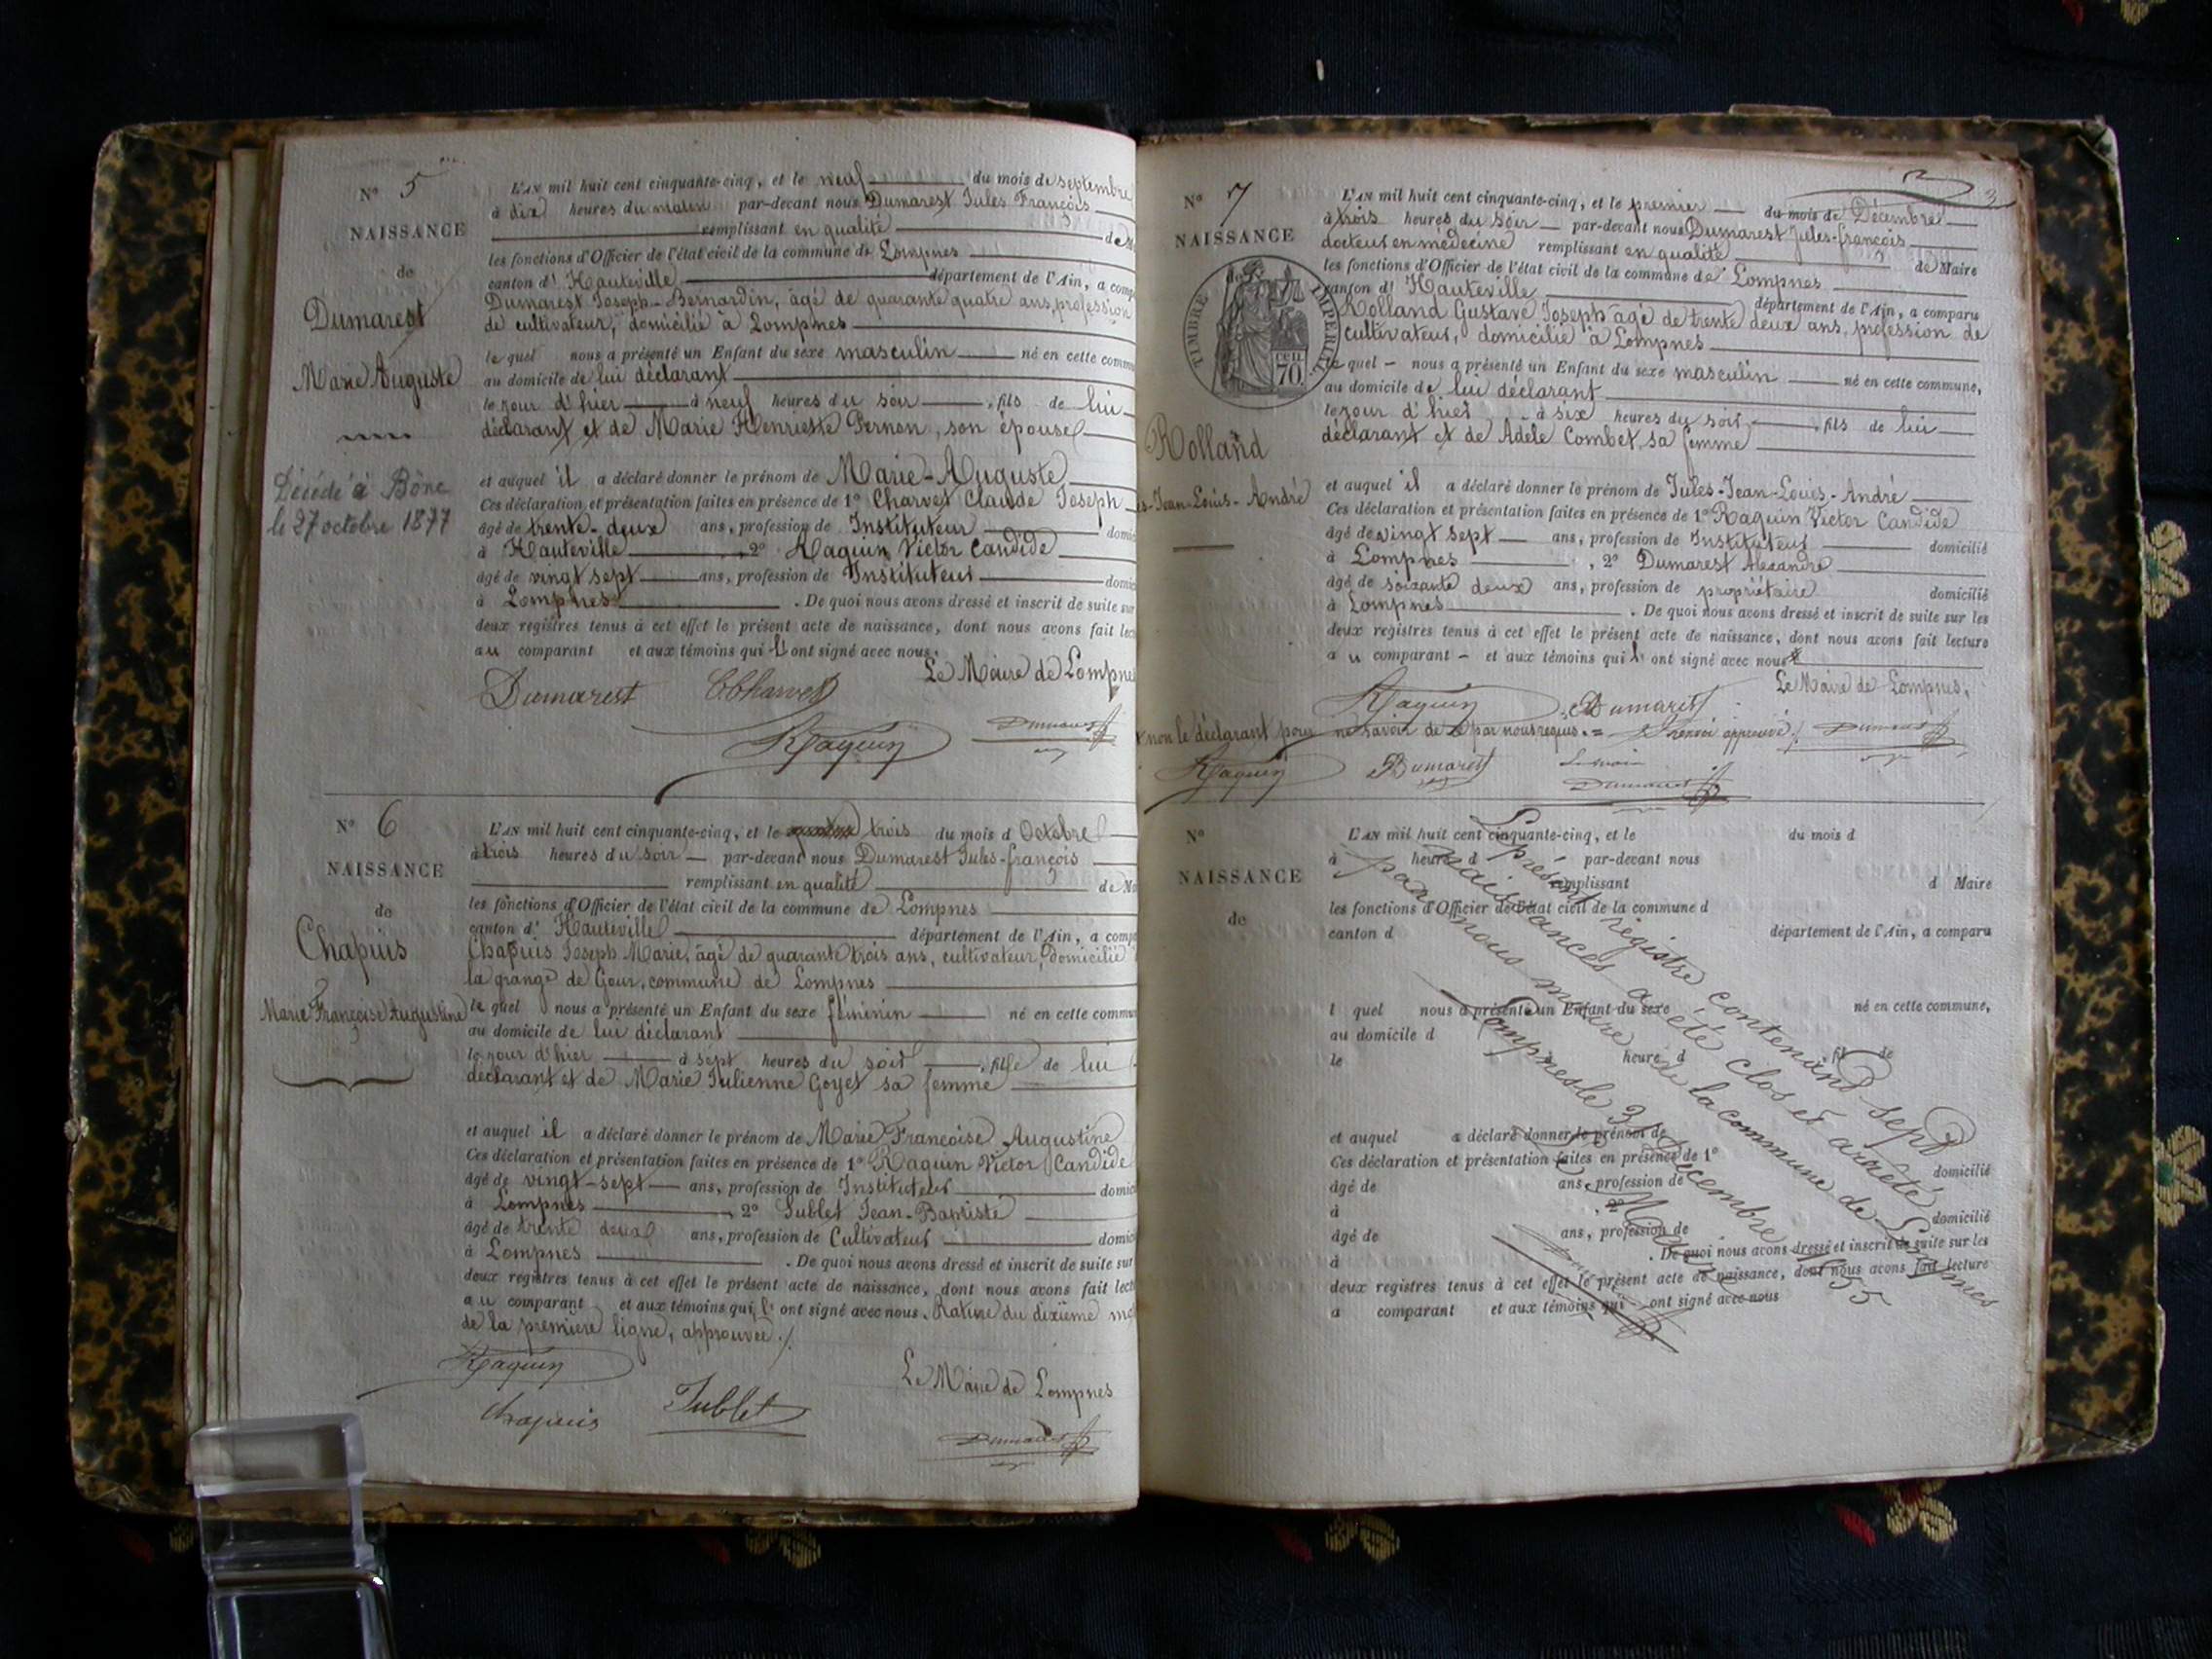 N° 5
NAISSANCE
de
Dumarest
Marie Auguste
Décédé à Bône
le 27 octobre 1877
L'AN mil huit cent cinquante-cinq, et le neuf du mois de septembre
à dix heures du matin par-devant nous Dumarest Jules François
remplissant en qualité de M
les fonctions d'Officier de l'état civil de la commune de Lompnes
canton d' Hauteville département de l'Ain, a comp
Dumarest Joseph-Bernardin, âgé de quarante quatre ans, profession
de cultivateur, domicilié à Lompnes
le quel nous a présenté un Enfant du sexe masculin né en cette commu
au domicile de lui déclarant
le jour d'hier à neuf heures du soir, fils de lui
déclarant et de Marie Henriette Pernon, son épouse
et auquel il a déclaré donner le prénom de Marie-Auguste
Ces déclaration et présentation faites en présence de 1° Charvet Claude Joseph
âgé de trente-deux ans, profession de Instituteur domic
à Hauteville, 2° Raquin Victor Candide
âgé de vingt sept ans, profession de Instituteur domic
à Lompnes. De quoi nous avons dressé et inscrit de suite sur
deux registres tenus à cet effet le présent acte de naissance, dont nous avons fait lect
au comparant et aux témoins qui l'ont signé avec nous.
Le Maire de Lompnes
Dumarest CCharvet
Raquin Dumarest
N° 6
NAISSANCE
de
Chapuis
Marie Françoise Augustine
L'AN mil huit cent cinquante-cinq, et le trois du mois d Octobre
à trois heures du soir par-devant nous Dumarest Jules-françois
remplissant en qualité de Ma
les fonctions d'Officier de l'état civil de la commune de Lompnes
canton d' Hauteville département de l'Ain, a comp
Chapuis Joseph Marie, âgé de quarante trois ans, cultivateur, domicilié
la grange de Gour, commune de Lompnes
le quel nous a présenté un Enfant du sexe féminin né en cette commu
au domicile de lui déclarant
le jour d'hier à sept heures du soir, fille de lui
déclarant et de Marie Julienne Goyet sa femme
et auquel il a déclaré donner le prénom de Marie Françoise Augustine
Ces déclaration et présentation faites en présence de 1° Raquin Victor Candide
âgé de vingt-sept ans, profession de Instituteur domic
à Lompnes, 2° Jublet Jean-Baptiste
âgé de trente deux ans, profession de Cultivateur domic
à Lompnes. De quoi nous avons dressé et inscrit de suite sur
deux registres tenus à cet effet le présent acte de naissance, dont nous avons fait lect
au comparant et aux témoins qui l'ont signé avec nous. Rature du dixième mo
de la première ligne, approuvée./.
Raquin
Le Maire de Lompnes
Chapuis Jublet
Dumarest
3
N° 7
NAISSANCE
de
TIMBRE IMPERIAL
cen
70
Rolland
s-Jean-Louis-André
L'AN mil huit cent cinquante-cinq, et le premier du mois de Décembre
à trois heures du soir par-devant nous Dumarest Jules-françois
docteur en médecine remplissant en qualité de Maire
les fonctions d'Officier de l'état civil de la commune de Lompnes
canton d' Hauteville département de l'Ain, a comparu
Rolland Gustave Joseph âgé de trente deux ans, profession de
cultivateur, domicilié à Lompnes
le quel nous a présenté un Enfant du sexe masculin né en cette commune,
au domicile de lui déclarant
le jour d'hier à six heures du soir, fils de lui
déclarant et de Adèle Combet, sa femme
et auquel il a déclaré donner le prénom de Jules-Jean-Louis-André
Ces déclaration et présentation faites en présence de 1° Raquin Victor Candide
âgé de vingt sept ans, profession de Instituteur domicilié
à Lompnes, 2° Dumarest Alexandre
âgé de soixante deux ans, profession de propriétaire domicilié
à Lompnes. De quoi nous avons dressé et inscrit de suite sur les
deux registres tenus à cet effet le présent acte de naissance, dont nous avons fait lecture
au comparant et aux témoins qui l'ont signé avec nous
Le Maire de Lompnes,
Raquin Dumarest
non le déclarant pour ne savoir de ce par nous requis. = renvoi approuvé ./. Dumarest
Raquin Dumarest Le maire
Dumarest
N°
NAISSANCE
de
L'AN mil huit cent cinquante-cinq, et le du mois d
à heures d par-devant nous
remplissant d Maire
les fonctions d'Officier de l'état civil de la commune d
canton d département de l'Ain, a comparu
l quel nous a présenté un Enfant du sexe né en cette commune,
au domicile d
le heure d fil de
et auquel a déclaré donner le prénom de
Ces déclaration et présentation faites en présence de 1°
âgé de ans, profession de domicilié
à , 2°
âgé de ans, profession de domicilié
à . De quoi nous avons dressé et inscrit de suite sur les
deux registres tenus à cet effet le présent acte de naissance, dont nous avons fait lecture
a comparant et aux témoins qui ont signé avec nous
Le présent registre contenant sept
naissances a été clos et arrêté
par nous maire de la commune de Lompnes
Lompnes le 31 Décembre 1855
Le Maire